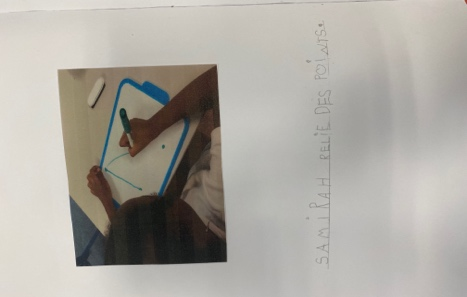 SAMIRAH RELIE DES POINTS.